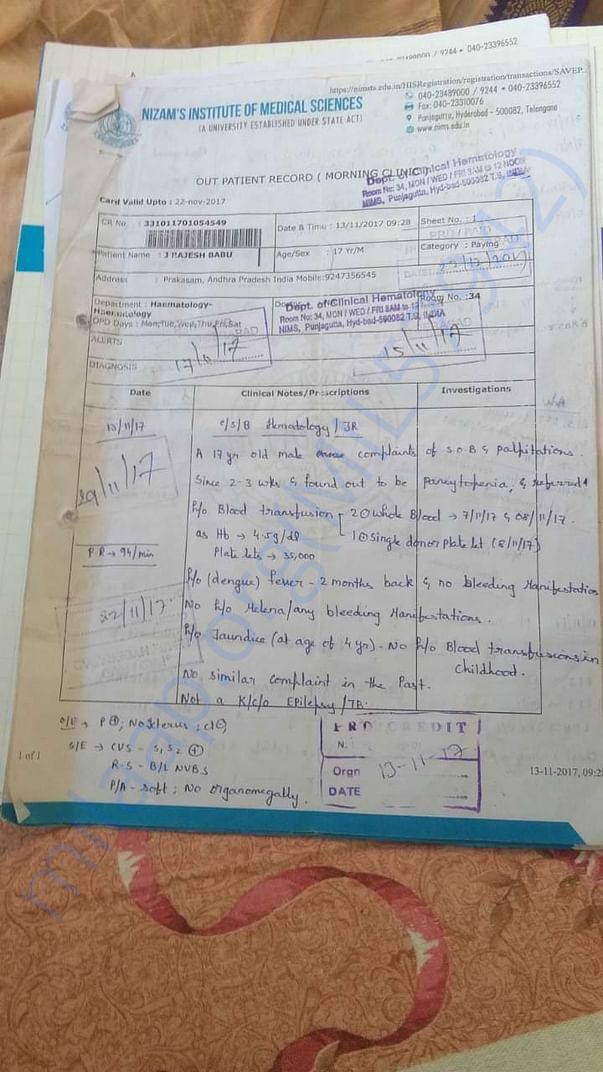 9000 / 9244 • 040-23396552
https://nimsts.edu.in/HISRegistration/registration/transactions/SAVEP..
NIZAM'S INSTITUTE OF MEDICAL SCIENCES
(A UNIVERSITY ESTABLISHED UNDER STATE ACT)
040-23489000 / 9244 • 040-23396552
Fax: 040-23310076
Panjagutta, Hyderabad - 500082, Telangana
www.nims.edu.in
OUT PATIENT RECORD ( MORNING CLINIC )
Dept. of Clinical Hematology
Room No: 34, MON / WED / FRI 8AM to 12 NOON
NIMS, Punjagutta, Hyd-bad-500082 T.S, INDIA
Card Valid Upto : 22-nov-2017
CR No. : 331011701054549
Date & Time : 13/11/2017 09:28
Sheet No. : 1
Patient Name : J RAJESH BABU
Age/Sex : 17 Yr/M
Category : Paying
Address : Prakasam, Andhra Pradesh India Mobile:9247356545
Department : Haematology-
Haematology
Room No. :34
Dept. of Clinical Hematology
Room No: 34, MON / WED / FRI 8AM to 12
NIMS, Punjagutta, Hyd-bad-500082 T.S, INDIA
OPD Days : Mon,Tue,Wed,Thu,Fri,Sat
ALERTS
17/11/17
15/11/17
DIAGNOSIS
Date
Clinical Notes/Prescriptions
Investigations
13/11/17
c/s/B Hematology / JR
A 17 yr old male complaints of S.O.B & palpitations
Since 2-3 wks & found out to be pancytopenia, & referred
29/11/17
h/o Blood transfusion - 2 whole Blood → 7/11/17 & 08/11/17.
as Hb → 4.5g/dl
1 Single donor platelet (8/11/17)
PR → 94/min
Platelets → 35,000
h/o (dengue) fever - 2 months back & no bleeding Manifestation
22/11/17
No h/o Melena/any bleeding Manifestations.
h/o Jaundice (at age of 4 yr) - No h/o Blood transfusions in
childhood.
No similar complaint in the Past.
Not a K/c/o Epilepsy / TB.
O/E → P⊕, No Icterus,
S/E → CVS - S1 S2 ⊕
R.S - B/L NVBS
P/A - soft; No organomegally.
PRO CREDIT
N.
Orgn
13-11-17
DATE
1 of 1
13-11-2017, 09:28